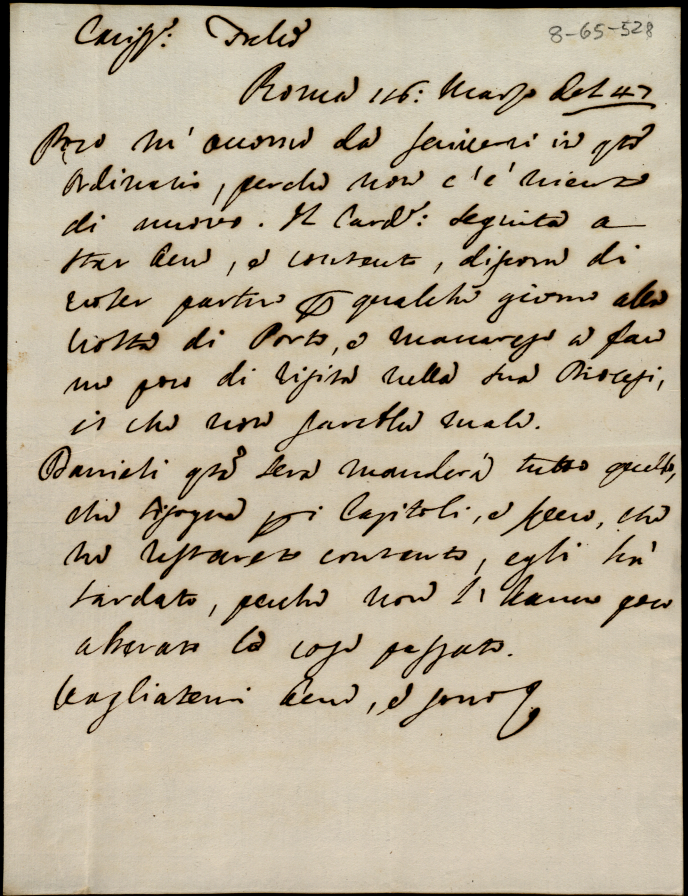 Cariss.: Frello
8-65-528
Roma 16: Marzo del 47
Poco m' occorre da scrivervi in qto
ordinario, perche non c'è niente
di nuovo. Il Card.: seguita a
star bene, e contento, dispone di
voler partire qualche giorno alla
volta di Porto, e Maccarese a fare
un poco di visita nella sua Diocesi,
il che non sarebbe male.
Danieli qta sera manderà tutto quello,
che bisogna pi Capitoli, e spero, che
ne resterete contento, egli hà
tardato, perche non l'hanno poco
alterato le cose passate.
Vogliatemi bene, e sono